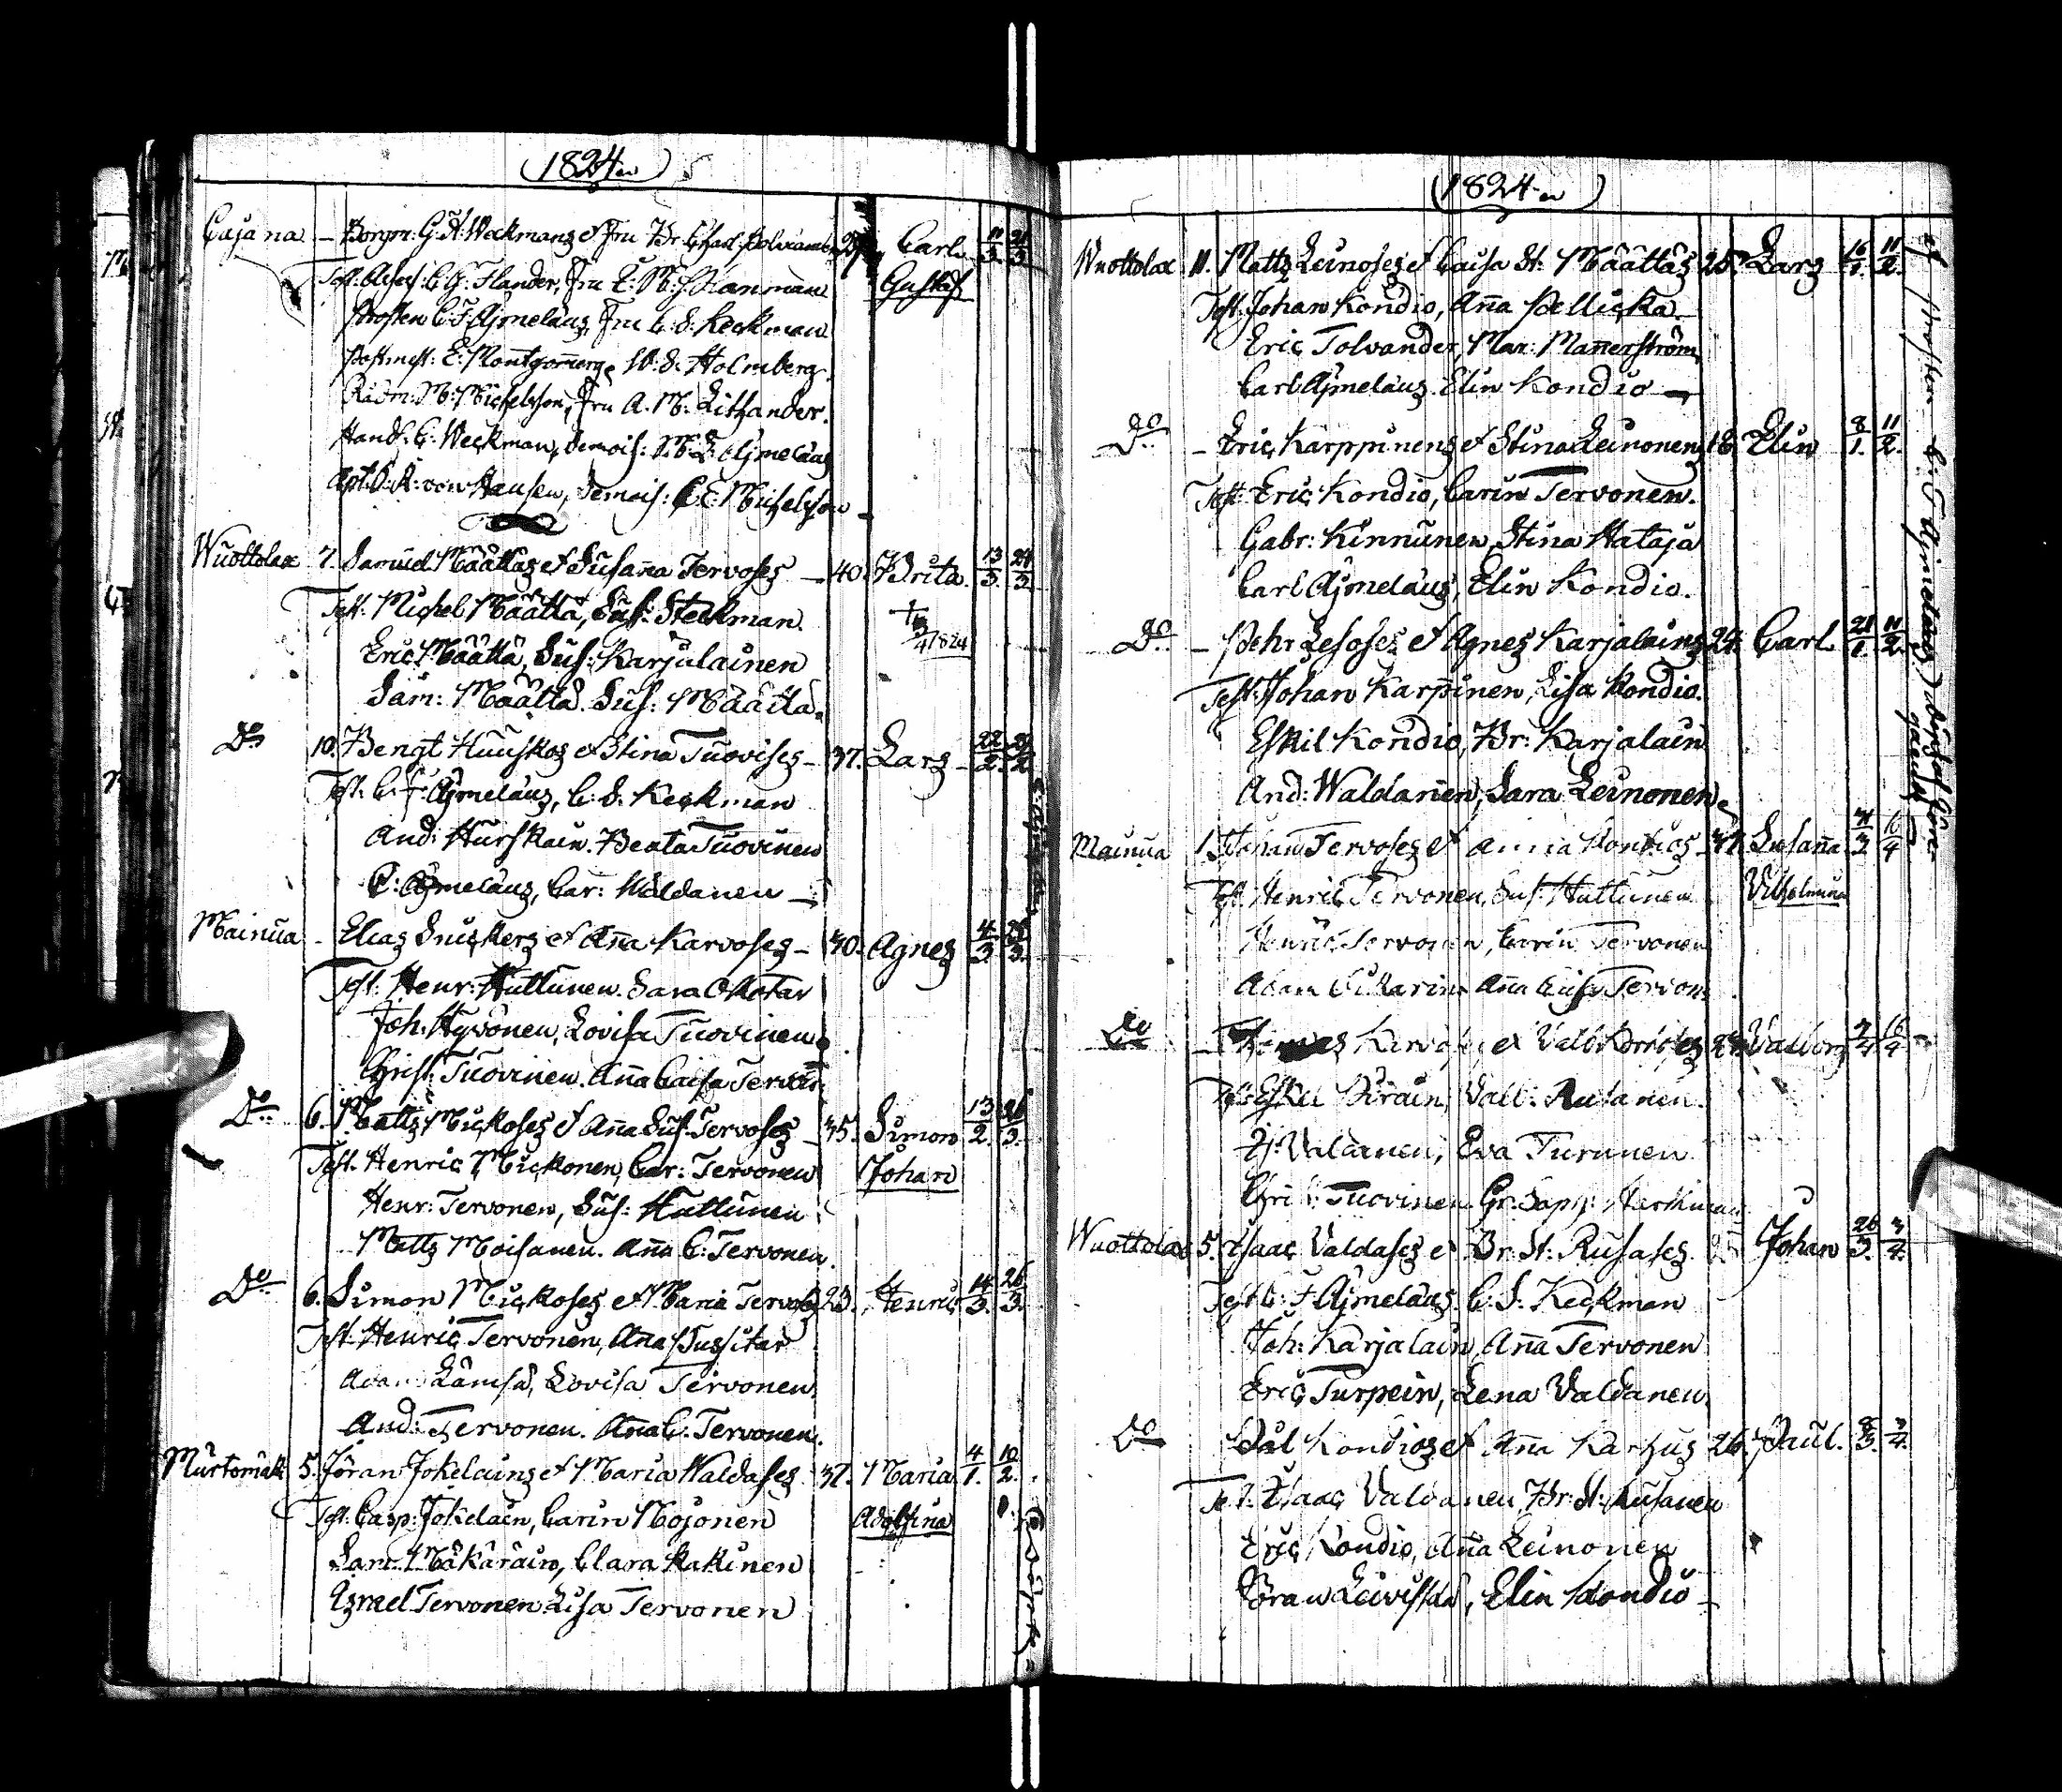 1824
Cajana - Borgm: G. A. Weckmans et Fru Br. Charl. 29 Carl 11/3 21/3
Test. C. G. Flander, Fru E. M. Ganman Gustaf
Prosten C. F. Ajmelæus, Fru C. S. Keckman
Postmest: E. Montgomery, W. S. Holmberg.
Rådm: M. Michelsson, Fru A. M. Lithander.
Handl: C. Weckman, Demois: M. L. Ajmelæus
von Hausen, Demois: C. E. Michelsson
Wuottolax 7. Samuel Määttas et Susanna Tervoses - 40. Brita. 13/3 24/3
Test. Michel Määttä, Sus: Steckman. † 1824
Eric Määttä, Sus: Karjalainen
Sam: Määttä. Sus: Määttä.
Do 10. Bengt Huuskos et Stina Tuovises - 37. Lars - 22/2
Test. C. F. Ajmelæus, C. S. Keckman
And: Hurskain. Beata Tuovinen
C: Ajmelæus, Car: Waldanen
Mainua - Elias Snickers et Anna Karvoses - 30. Agnes 4/3 25/3
Test. Henr: Huttunen. Sara
Joh: Hyvönen, Lovisa Tuovinen
Christ: Tuovinen. Anna Caisa Tervon
Do 6. Matts Mickoses et Anna Sus. Tervoses - 35. Simon 13/2 26/3
Test. Henric Mickonen, Car: Tervonen Johan
Henr: Tervonen, Sus: Huttunen
Matts Moisanen. Anna C: Tervonen.
Do 6. Simon Mickoses et Maria Tervoses 23. Henric 14/3 26/3
Test. Henric Tervonen, Anna
Adam Lämsä, Lovisa Tervonen
And: Tervonen. Anna C. Tervonen.
Murtomäk 5. Jöran Jokelains et Maria Waldases 37. Maria 4/1 10/2
Test. Casp: Jokelain, Carin Mojonen Adolfina
Sam: Mäkäräin, Clara Kakinen
Israel Tervonen Lisa Tervonen
1824
Wuottolax 11. Matts Leinoses et Caisa St: Määttäs 25. Lars 16/1 11/2
Test. Johan Kondio, Anna Pellicka
Eric Tolvander, Mar: Mannerström
Carl Ajmelæus. Elin Kondio
Do - Eric Karppinens et Stina Leinonens 18. Elin 8/1 11/2
Test. Eric Kondio, Carin Tervonen.
Gabr: Kinnunen, Stina Hataja
Carl Ajmelæus, Elin Kondio.
Do - Pehr Lesoses et Agnes Karjalains 24. Carl 21/1 11/2
Test. Johan Karpinen, Lisa Kondio.
Eskil Kondio, Br: Karjalain
And: Waldanen, Sara Leinonen
Mainua 1. Johan Tervoses et Anna 37. Susanna 16/4
Test. Henric Tervonen, Sus: Huttunen Vilhelmina
Henric Tervonen, Carin Tervonen
Adam Anna Caisa Tervon
Do - Karvoses et Valb. Valborg 16/4
Test. Eskel Valb: Rusanen.
Valdanen, Eva Turunen
Christ: Tuovinen
Wuottolax 5. Isaac Valdases et Br: St: Rusases. Johan 26/3
Test. C. F. Ajmelæus. C. S. Keckman
Joh: Karjalain, Anna Tervonen
Eric Turpein, Lena Valdanen
Do Pål Kondios et Anna Karhus 26. Paul.
Test. Isaac Valdanen, Br: St: Rusanen
Eric Kondio, Anna Leinonen
Jöran Leiviskä, Elin Kondio